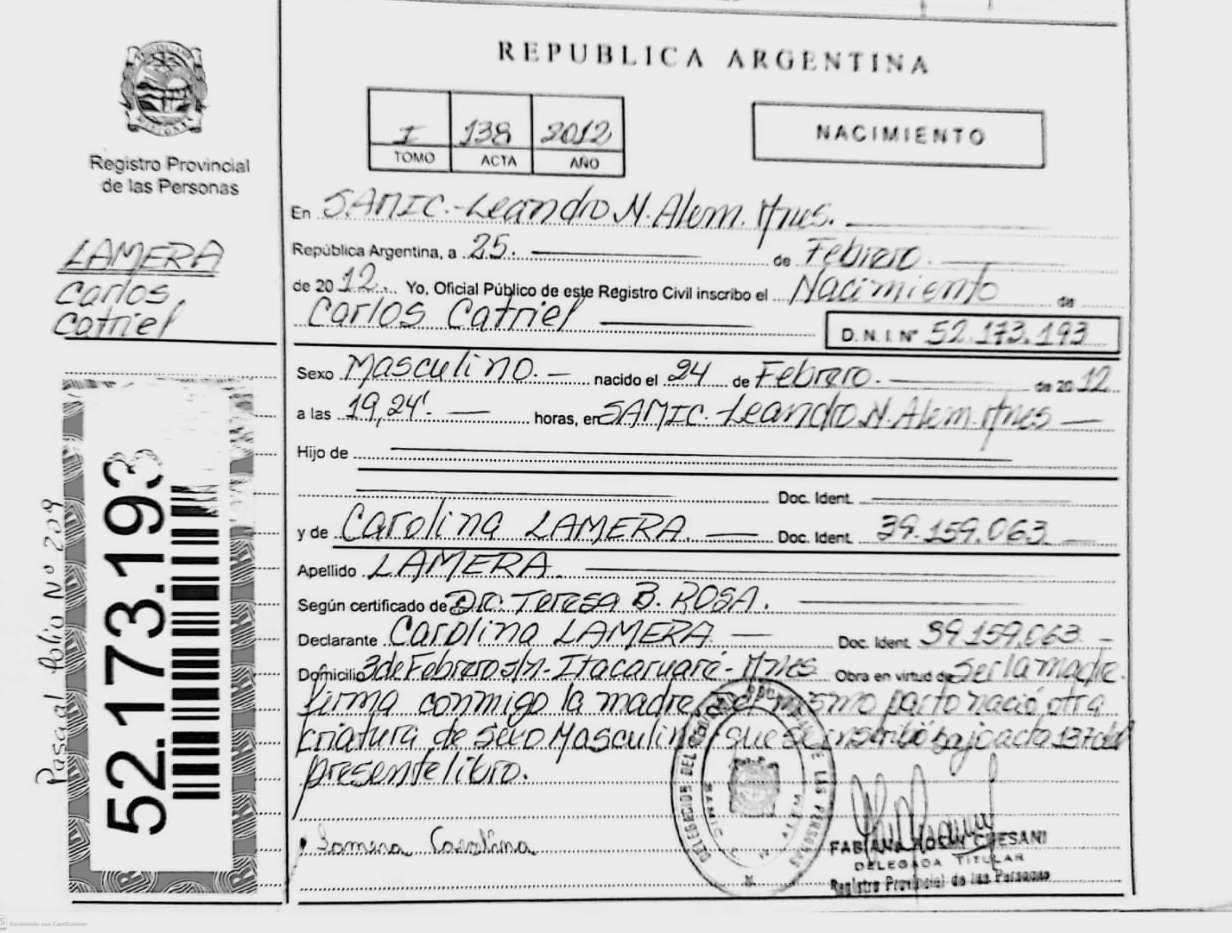 REPUBLICA ARGENTINA
I 138 2012
TOMO ACTA AÑO
NACIMIENTO
Registro Provincial
de las Personas
LAMERA
Carlos
Catriel
En S.AMIC.-Leandro N. Alem. Mnes.
República Argentina, a 25. de Febrero.
de 2012. Yo, Oficial Público de este Registro Civil inscribo el Nacimiento de
Carlos Catriel
D.N.I. N° 52.173.193
Sexo Masculino.- nacido el 24 de Febrero. de 2012
a las 19,24'. horas, en SAMIC.-Leandro N. Alem. Mnes
Hijo de
Doc. Ident.
y de Carolina LAMERA. Doc. Ident. 39.159.063.
Apellido LAMERA.
Según certificado de Dra. TERESA B. ROSA.
Declarante Carolina LAMERA Doc. Ident. 39.159.063-
Domicilio 3 de Febrero s/n-Itacaruaré-Mnes Obra en virtud de Ser la madre.
firma conmigo la madre, del mismo parto nació otra
criatura de sexo Masculino que se inscribió bajo acta 137 del
presente libro.
Lamera Carolina
DELEGACION DEL REGISTRO PROVINCIAL DE LAS PERSONAS
DELEGADA TITULAR
Registro Provincial de las Personas
Pasa al folio N° 209
52.173.193